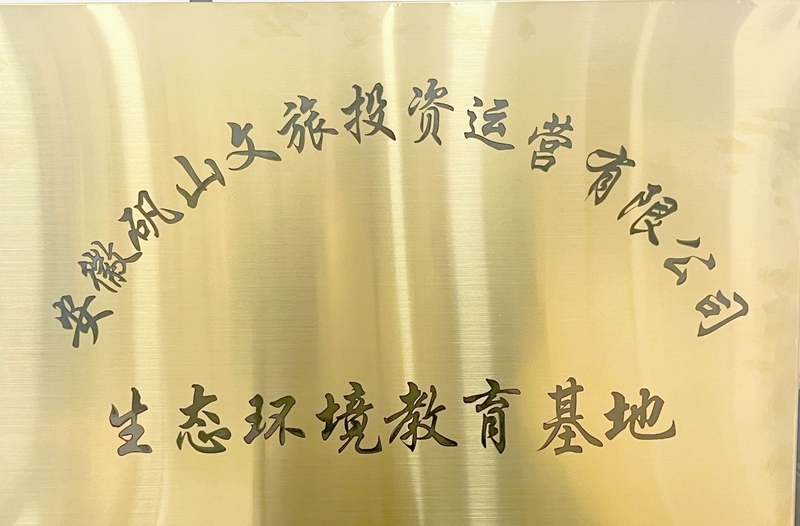 安徽矾山文旅投资运营有限公司
生态环境教育基地